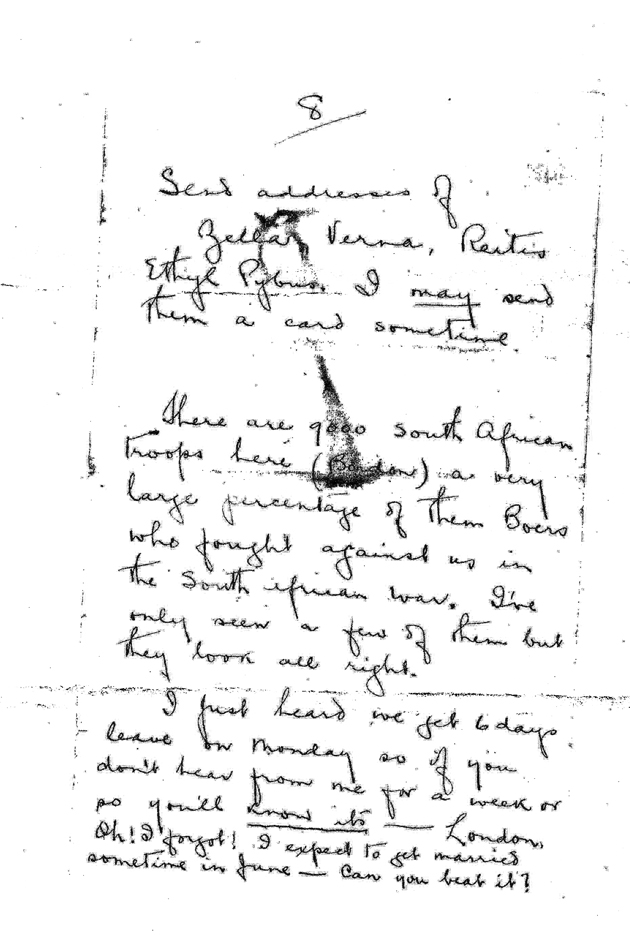 8
Send addresses of
Zellar, Verna, Reitis
Ethyl Pybus. I may send
them a card sometime.
There are 9000 South African
Troops here (Bordon) a very
large percentage of them Boers
who fought against us in
the South African war. I've
only seen a few of them but
they look all right.
I just heard we get 6 days
leave on Monday so if you
don't hear from me for a week or
so you'll know it's — London.
Oh! I forgot! I expect to get married
sometime in June — Can you beat it?